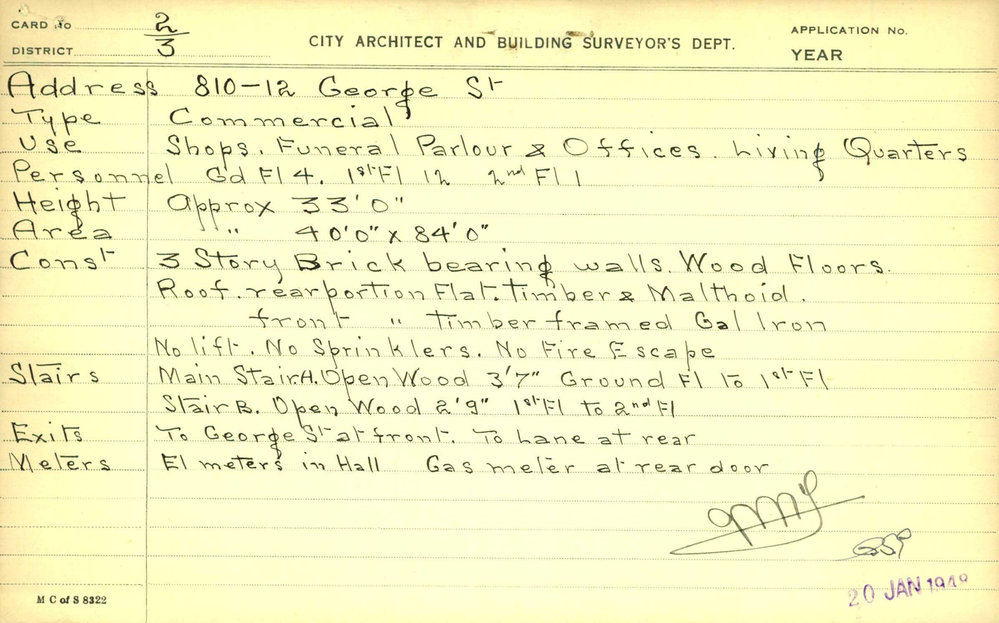 CARD No 2/3
DISTRICT
CITY ARCHITECT AND BUILDING SURVEYOR'S DEPT.
APPLICATION No.
YEAR
Address 810-12 George St
Type Commercial
Use Shops. Funeral Parlour & Offices. Living Quarters
Personnel Gd Fl 4. 1st Fl 12 2nd Fl 1
Height Approx 33'0"
Area " 40'0" x 84'0"
Const 3 Story Brick bearing walls. Wood Floors.
Roof. rear portion Flat. Timber & Malthoid.
front " Timber framed Gal Iron
No lift. No Sprinklers. No Fire Escape
Stairs Main Stair A. Open Wood 3'7" Ground Fl to 1st Fl
Stair B. Open Wood 2'9" 1st Fl to 2nd Fl
Exits To George St at front. To Lane at rear
Meters El meters in Hall Gas meter at rear door
20 JAN 1949
M C of S 8322